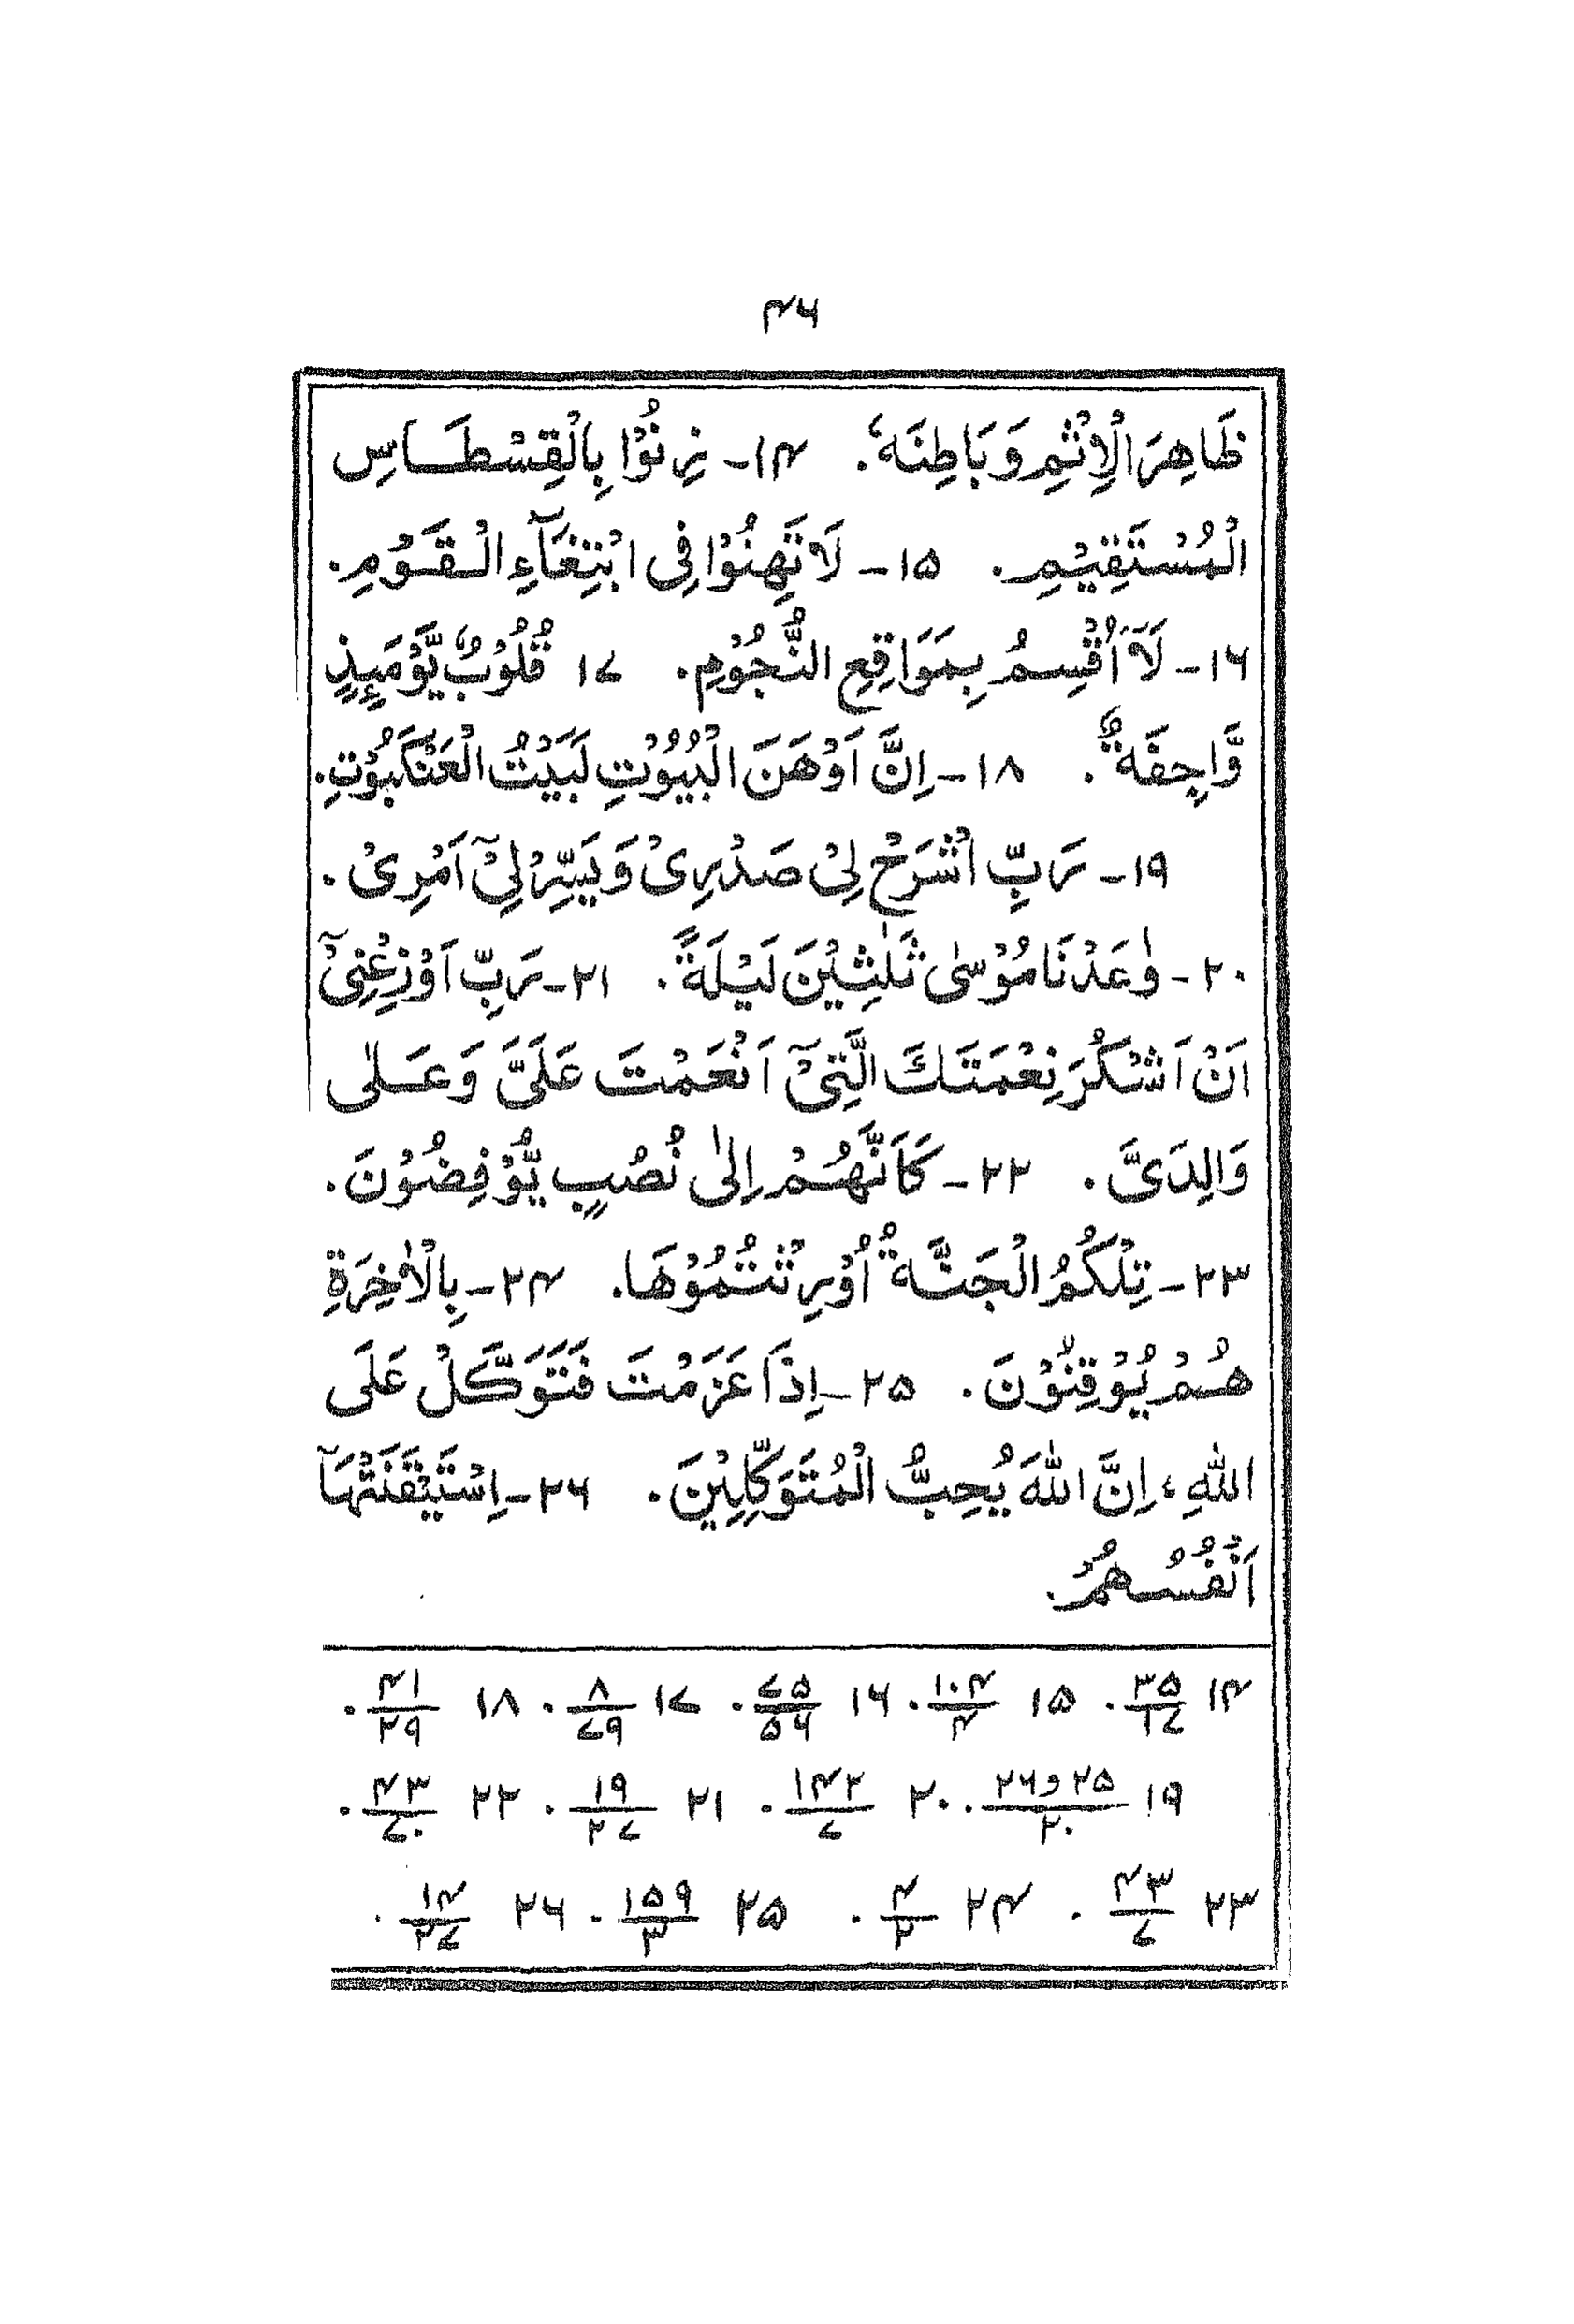 ۴۶
ظَاهِرَ الْاِثْمِ وَ بَاطِنَهٗ. ۱۴- زِنُوْا بِالْقِسْطَاسِ
الْمُسْتَقِيْمِ. ۱۵- لَا تَهِنُوْا فِی ابْتِغَآءِ الْقَوْمِ.
۱۶- لَآ اُقْسِمُ بِمَوَاقِعِ النُّجُوْمِ. ۱۷ قُلُوْبٌ يَّوْمَىِٕذٍ
وَّاجِفَةٌ. ۱۸- اِنَّ اَوْهَنَ الْبُيُوْتِ لَبَيْتُ الْعَنْكَبُوْتِ.
۱۹- رَبِّ اشْرَحْ لِیْ صَدْرِیْ وَيَسِّرْ لِیْٓ اَمْرِیْ.
۲۰- وٰعَدْنَا مُوْسٰی ثَلٰثِيْنَ لَيْلَةً. ۲۱- رَبِّ اَوْزِعْنِیْٓ
اَنْ اَشْكُرَ نِعْمَتَكَ الَّتِیْٓ اَنْعَمْتَ عَلَیَّ وَعَلٰی
وَالِدَیَّ. ۲۲- كَاَنَّهُمْ اِلٰی نُصُبٍ يُّوْفِضُوْنَ.
۲۳- تِلْكُمُ الْجَنَّةُ اُوْرِثْتُمُوْهَا. ۲۴- بِالْاٰخِرَةِ
هُمْ يُوْقِنُوْنَ. ۲۵- اِذَا عَزَمْتَ فَتَوَكَّلْ عَلَی
اللّٰهِ، اِنَّ اللّٰهَ يُحِبُّ الْمُتَوَكِّلِيْنَ. ۲۶- اِسْتَيْقَنَتْهَآ
اَنْفُسُهُمْ.
۱۴ ۳۵/۱۷. ۱۵ ۱۰۴/۴. ۱۶ ۷۵/۵۶. ۱۷ ۸/۷۹. ۱۸ ۴۱/۲۹.
۱۹ ۲۵و۲۶/۲۰. ۲۰ ۱۴۲/۷. ۲۱ ۱۹/۲۷. ۲۲ ۴۳/۷۰.
۲۳ ۴۳/۷. ۲۴ ۴/۲. ۲۵ ۱۵۹/۳. ۲۶ ۱۴/۲۷.